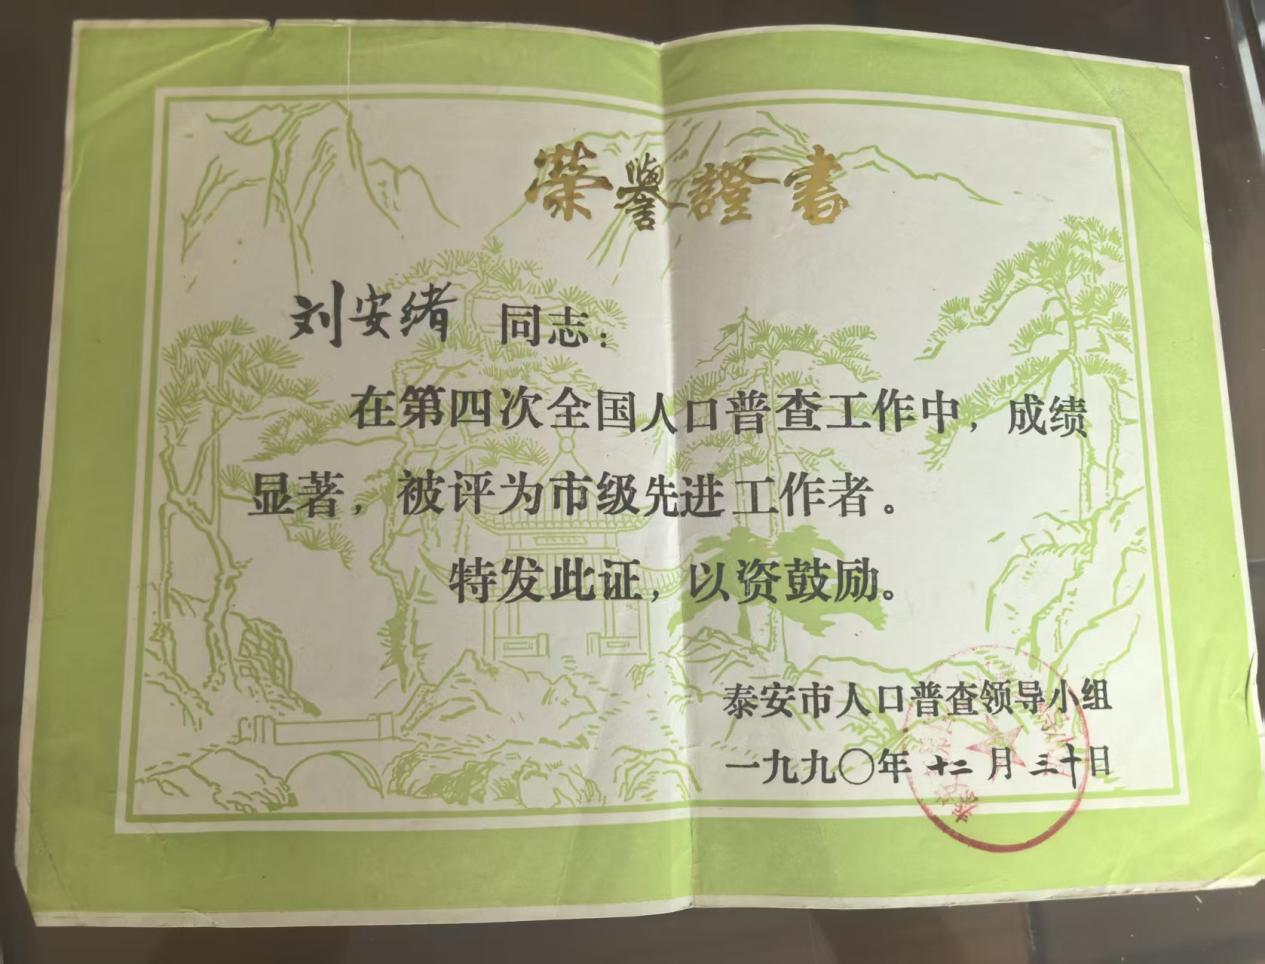 榮譽證書
刘安绪 同志：
在第四次全国人口普查工作中，成绩
显著，被评为市级先进工作者。
特发此证，以资鼓励。
泰安市人口普查领导小组
一九九〇年十二月三十日